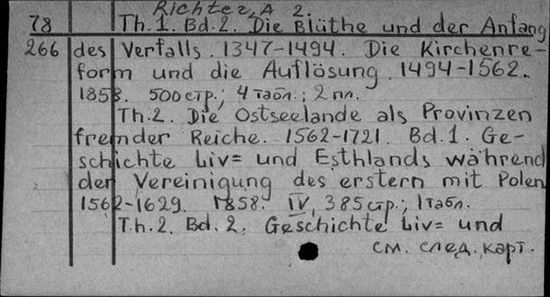 Richter, A 2.
78 Th.1. Bd.2. Die Blüthe und der Anfang
266 des Verfalls. 1347-1494. Die Kirchenre-
form und die Auflösung. 1494-1562.
1858. 500 стр.; 4 табл.; 2 пл.
Th.2. Die Ostseelande als Provinzen
fremder Reiche. 1562-1721. Bd.1. Ge-
schichte Liv= und Esthlands während
der Vereinigung des erstern mit Polen
1562-1629. 1858. IV, 385 стр.; 1 табл.
Th.2. Bd.2. Geschichte Liv= und
см. след. карт.